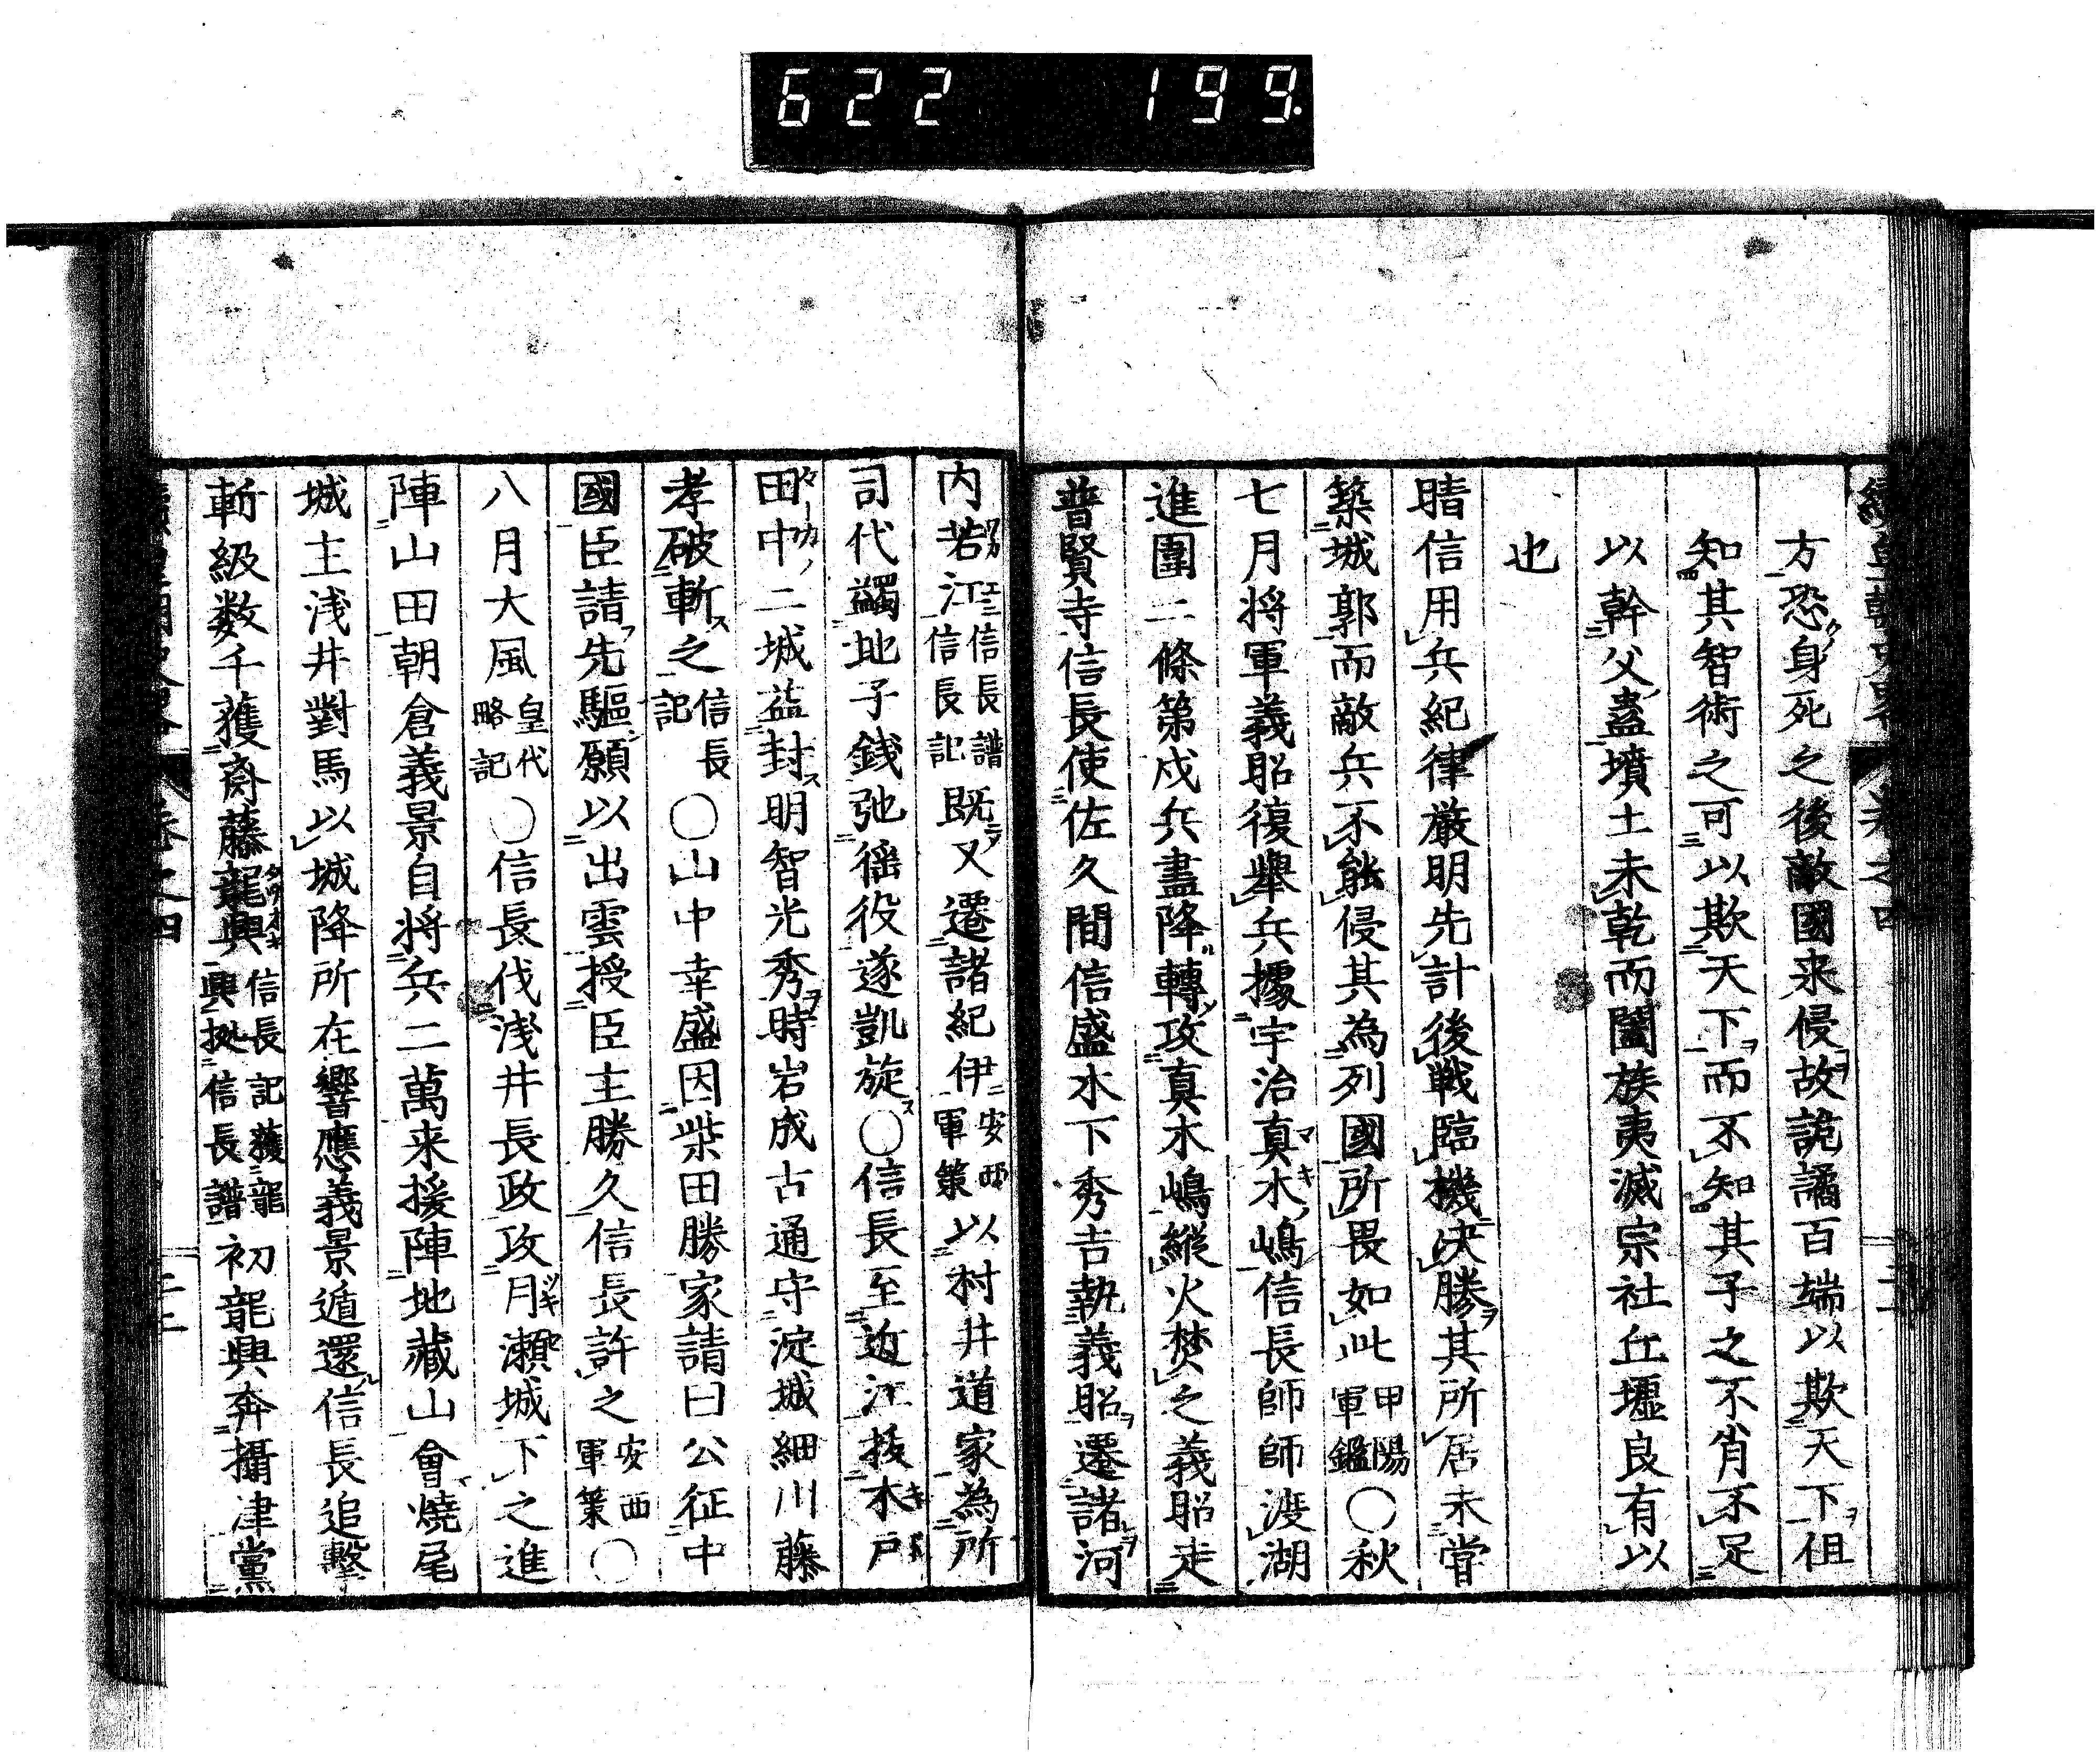 622 199
方恐身死之後敵國来侵故詭譎百端以欺天下但
知其智術之可以欺天下而不知其子之不肖不足
以幹父蠱墳土未乾而闔族夷滅宗社丘墟良有以
也
晴信用兵紀律厳明先計後戦臨機决勝其所居未甞
築城郭而敵兵不能侵其為列國所畏如此甲陽軍鑑〇秋
七月将軍義昭復舉兵據宇治真木嶋信長師師渡湖
進圍二條第戍兵盡降轉攻真木嶋縱火焚之義昭走
普賢寺信長使佐久間信盛木下秀吉執義昭遷諸河
内若江信長譜信長記既又遷諸紀伊安西軍策以村井道家為所
司代蠲地子銭弛徭役遂凱旋〇信長至近江拔木戸
田中二城益封明智光秀時岩成古通守淀城細川藤
孝破斬之信長記〇山中幸盛因柴田勝家請曰公征中
國臣請先驅願以出雲授臣主勝久信長許之安西軍策〇
八月大風皇代略記〇信長伐浅井長政攻月瀬城下之進
陣山田朝倉義景自将兵二萬来援陣地藏山會燒尾
城主浅井對馬以城降所在響應義景遁還信長追擊
斬級数千獲斎藤龍興信長記獲龍興拠信長譜初龍興奔攝津黨